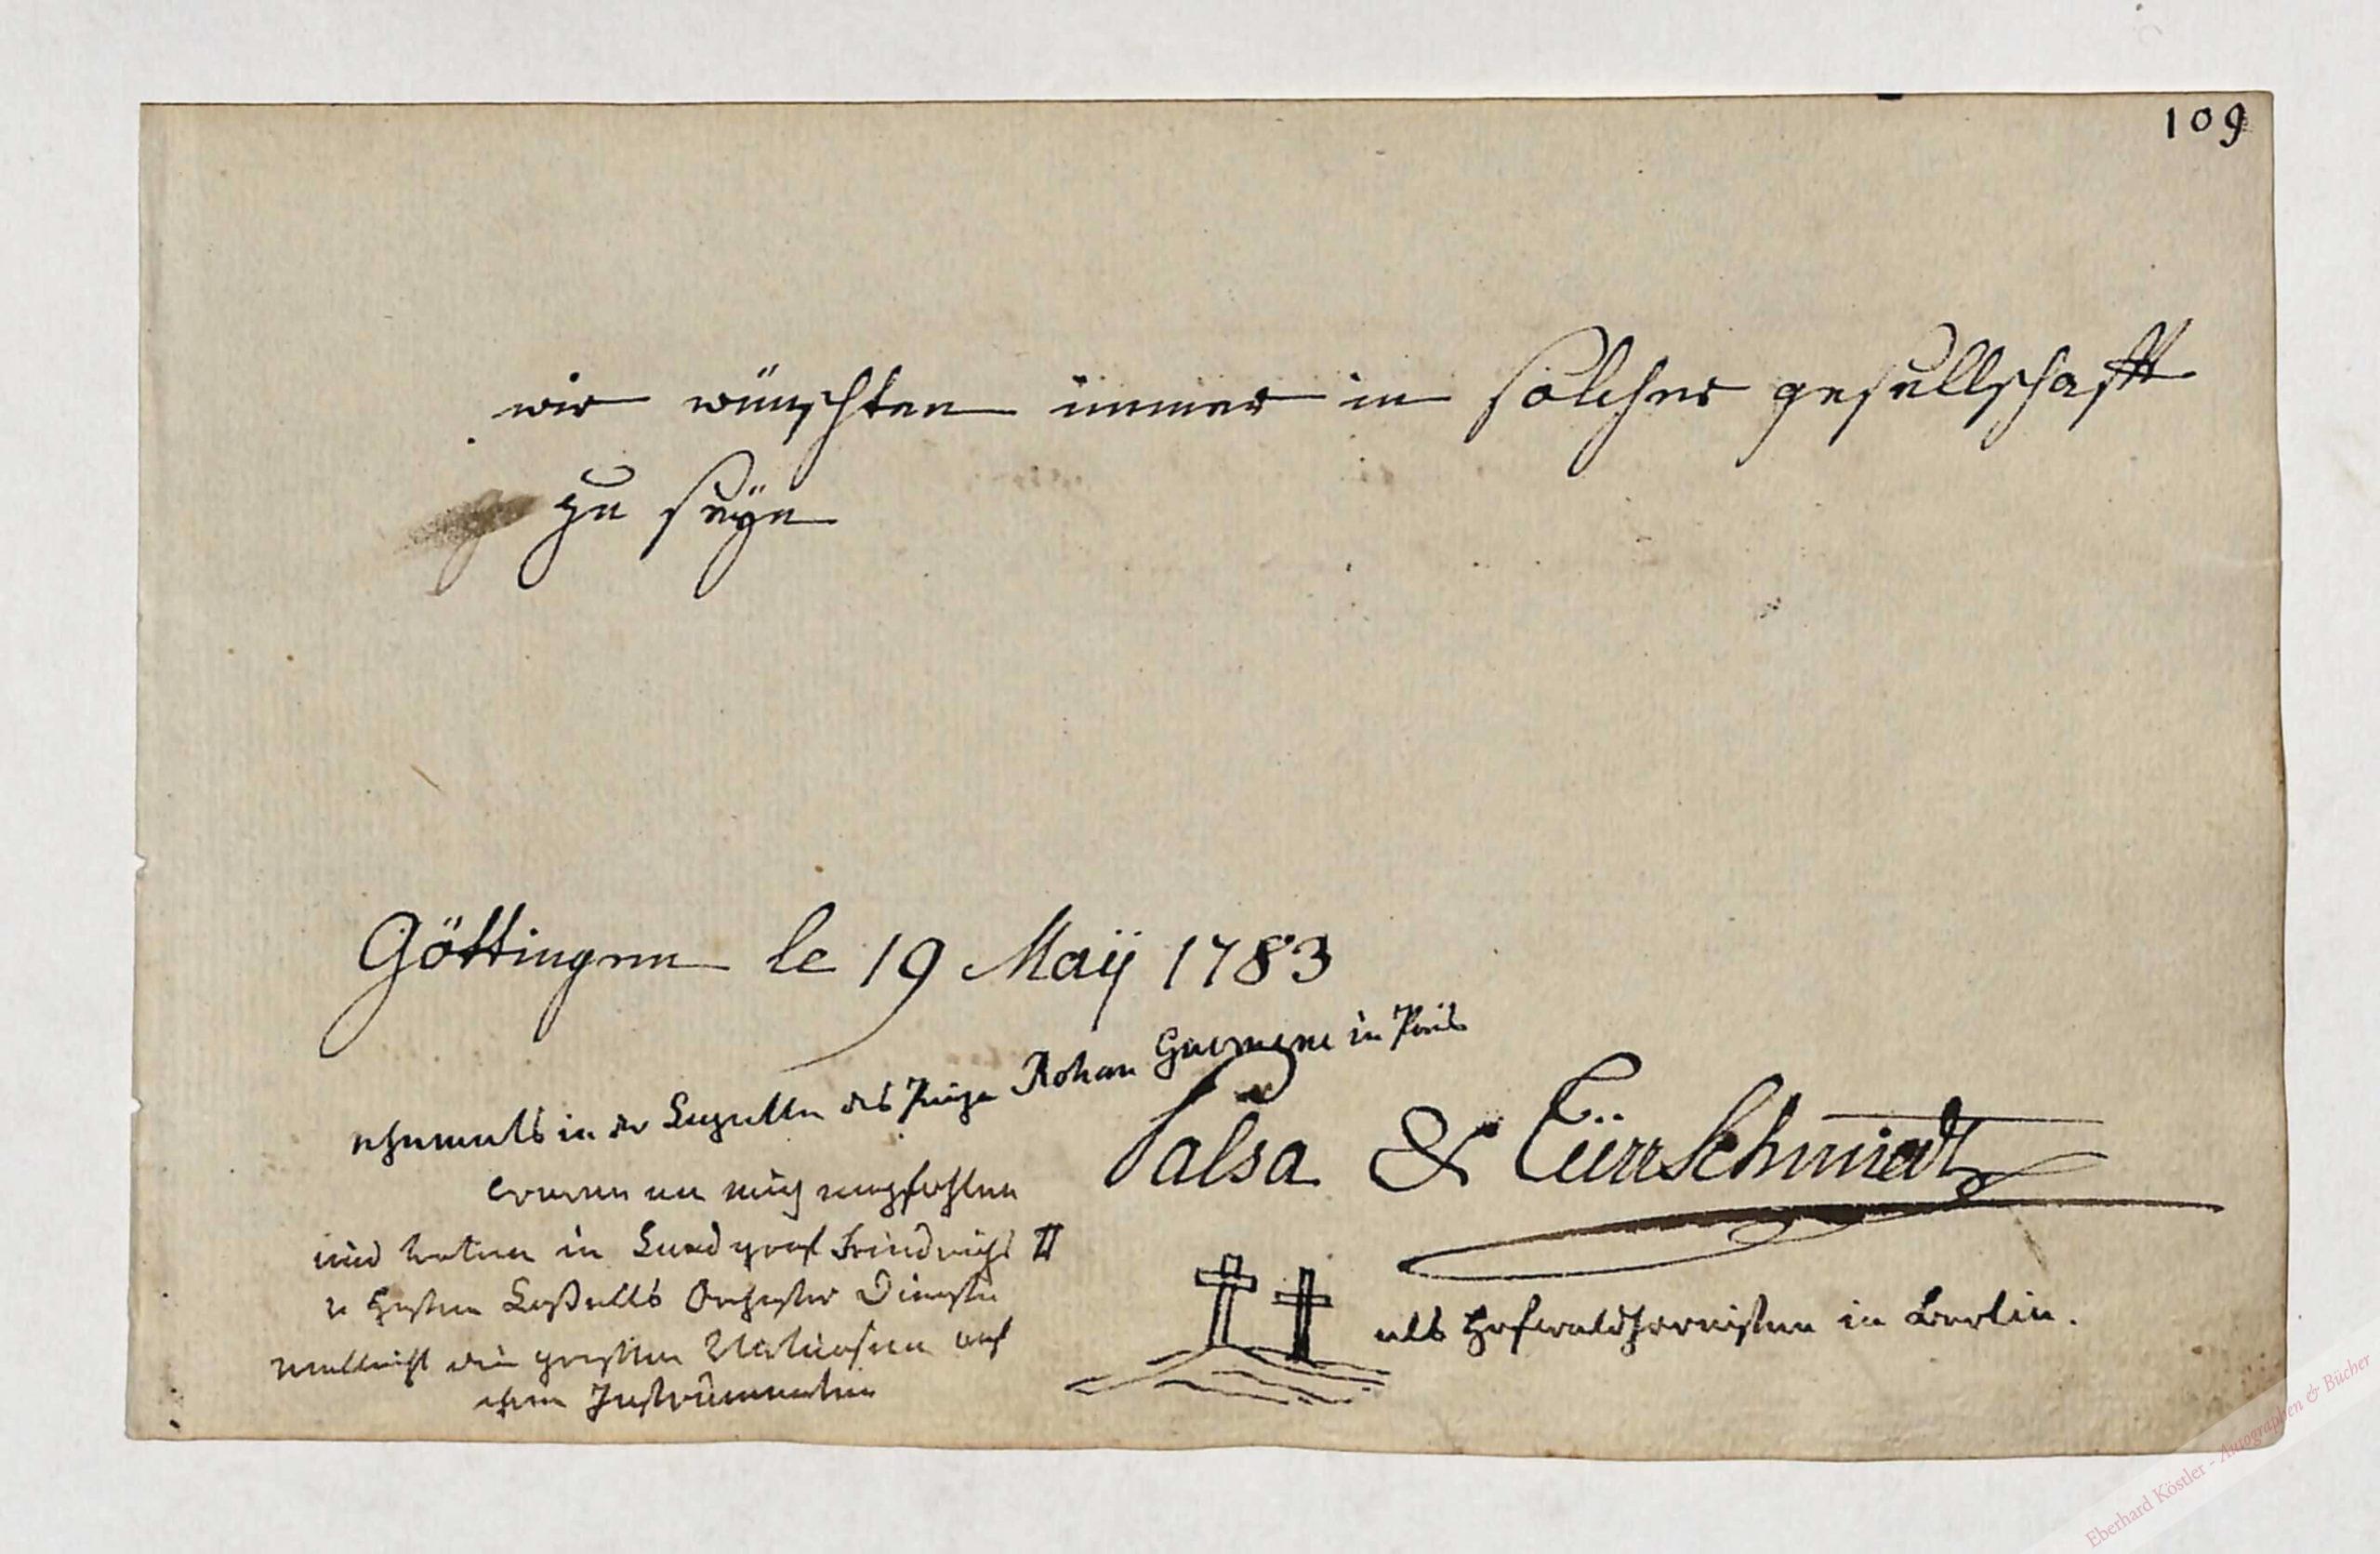 109
wir wünschten immer in solcher gesellschafft
zu seÿn
Göttingen le 19 Maÿ 1783
ehemals in der Capelle des Prinzen Rohan Guemene in Paris
Palsa & Türrschmiedt
waren an mich empfohlen
und traten in Landgraf Friedrichs II
v Hessen Cassells Orchester Dienste
vielleicht die grösten Virtuosen auf
ihren Instrumenten
als Hofwaldhornisten in Berlin.
Eberhard Köstler - Autographen & Bücher